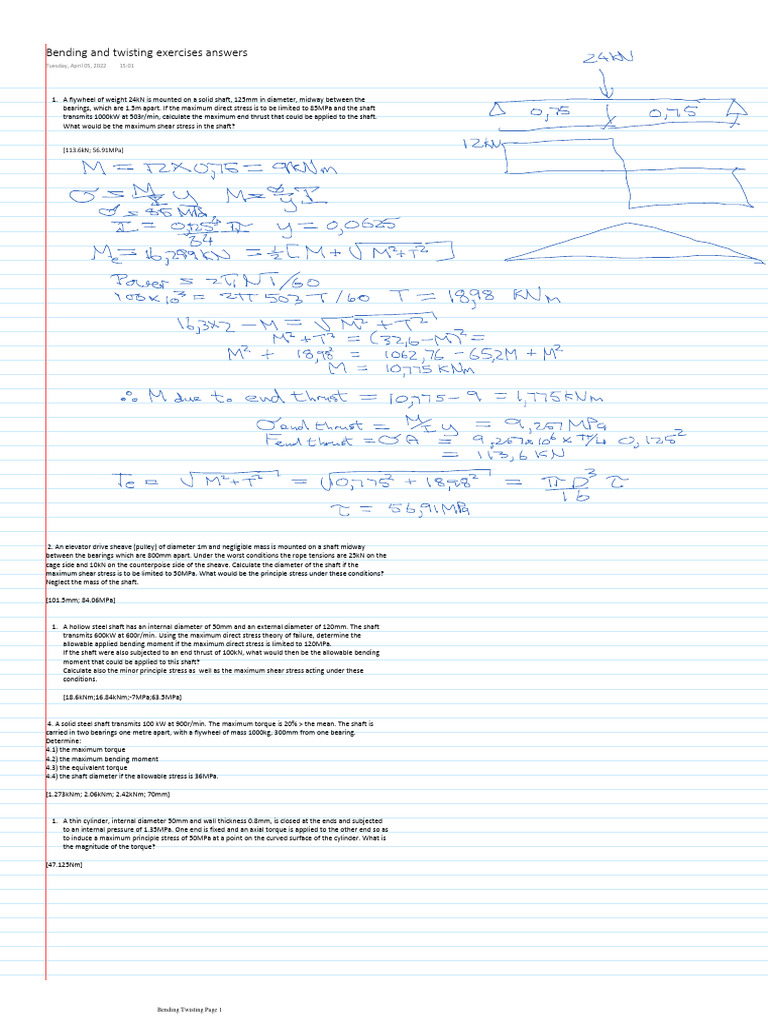 Bending and twisting exercises answers
Tuesday, April 05, 2022 15:01
24kN
1. A flywheel of weight 24kN is mounted on a solid shaft, 125mm in diameter, midway between the
bearings, which are 1.5m apart. If the maximum direct stress is to be limited to 85MPa and the shaft
transmits 1000kW at 503r/min, calculate the maximum end thrust that could be applied to the shaft.
What would be the maximum shear stress in the shaft?
0,75 0,75
12kN
[113.6kN; 56.91MPa]
M = 12 x 0,75 = 9kNm
σ = M/I y M = σ/y I
σ = 85 MPa
I = 0,125⁴ π / 64 y = 0,0625
Me = 16,299kN = ½[M + √M²+T²]
Power = 2πNT/60
1000x10³ = 2π 503 T/60 T = 18,98 KNm
16,3x2 - M = √M² + T²
M² + T² = (32,6 - M)² =
M² + 18,98² = 1062,76 - 65,2M + M²
M = 10,775 KNm
∴ M due to end thrust = 10,775 - 9 = 1,775kNm
σ end thrust = M/I y = 9,257 MPa
F end thrust = σA = 9,257x10⁶ x π/4 0,125²
= 113,6 KN
Te = √M²+T² = √10,775² + 18,98² = πD³/16 τ
τ = 56,91MPa
2. An elevator drive sheave (pulley) of diameter 1m and negligible mass is mounted on a shaft midway
between the bearings which are 800mm apart. Under the worst conditions the rope tensions are 25kN on the
cage side and 10kN on the counterpoise side of the sheave. Calculate the diameter of the shaft if the
maximum shear stress is to be limited to 50MPa. What would be the principle stress under these conditions?
Neglect the mass of the shaft.
[101.5mm; 84.06MPa]
1. A hollow steel shaft has an internal diameter of 50mm and an external diameter of 120mm. The shaft
transmits 600kW at 600r/min. Using the maximum direct stress theory of failure, determine the
allowable applied bending moment if the maximum direct stress is limited to 120MPa.
If the shaft were also subjected to an end thrust of 100kN, what would then be the allowable bending
moment that could be applied to this shaft?
Calculate also the minor principle stress as well as the maximum shear stress acting under these
conditions.
[18.6kNm;16.84kNm;-7MPa;63.5MPa]
4. A solid steel shaft transmits 100 kW at 900r/min. The maximum torque is 20% > the mean. The shaft is
carried in two bearings one metre apart, with a flywheel of mass 1000kg, 300mm from one bearing.
Determine:
4.1) the maximum torque
4.2) the maximum bending moment
4.3) the equivalent torque
4.4) the shaft diameter if the allowable stress is 36MPa.
[1.273kNm; 2.06kNm; 2.42kNm; 70mm]
1. A thin cylinder, internal diameter 50mm and wall thickness 0.8mm, is closed at the ends and subjected
to an internal pressure of 1.35MPa. One end is fixed and an axial torque is applied to the other end so as
to induce a maximum principle stress of 50MPa at a point on the curved surface of the cylinder. What is
the magnitude of the torque?
[47.125Nm]
Bending Twisting Page 1